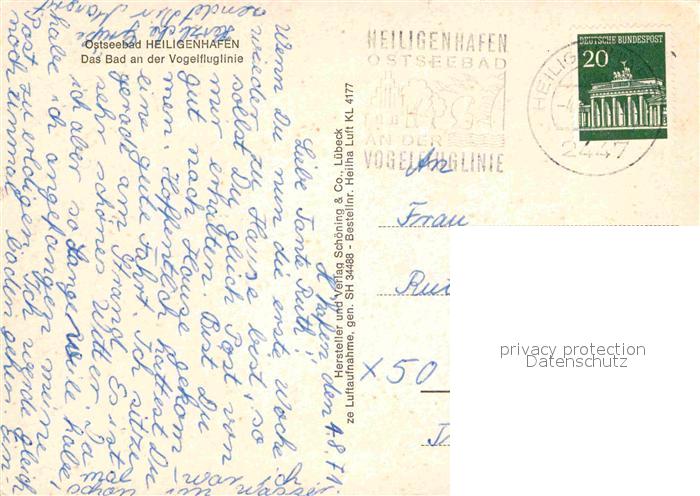 Ostseebad HEILIGENHAFEN
Das Bad an der Vogelfluglinie
HEILIGENHAFEN
OSTSEEBAD
AN DER
VOGELFLUGLINIE
DEUTSCHE BUNDESPOST
20
HEILIG
2447
H'hafen, den 4.8.71.
Liebe Tante Ruth!
Wenn Du nun die erste Woche
wieder zu Hause bist, so
sollst Du gleich Post von
mir erhalten. Bist Du
gut nach Hause gekom-
men. Hoffentlich hattest Du
eine gute Fahrt. Ich sitze
gerade am Strand. Es ist
sehr schönes Wetter. Da
ich aber so Langeweile habe,
habe ich angefangen meine
Post zu erledigen. Ich werde gleich
noch einmal baden gehen. Ein-
mal
schon im Wasser.
Herzliche Grüße
sendet Dir
Hersteller und Verlag Schöning & Co., Lübeck
ze Luftaufnahme, gen. SH 34488 - Bestellnr. Heilha Luft KL 4177
An
Frau
x50
privacy protection
Datenschutz